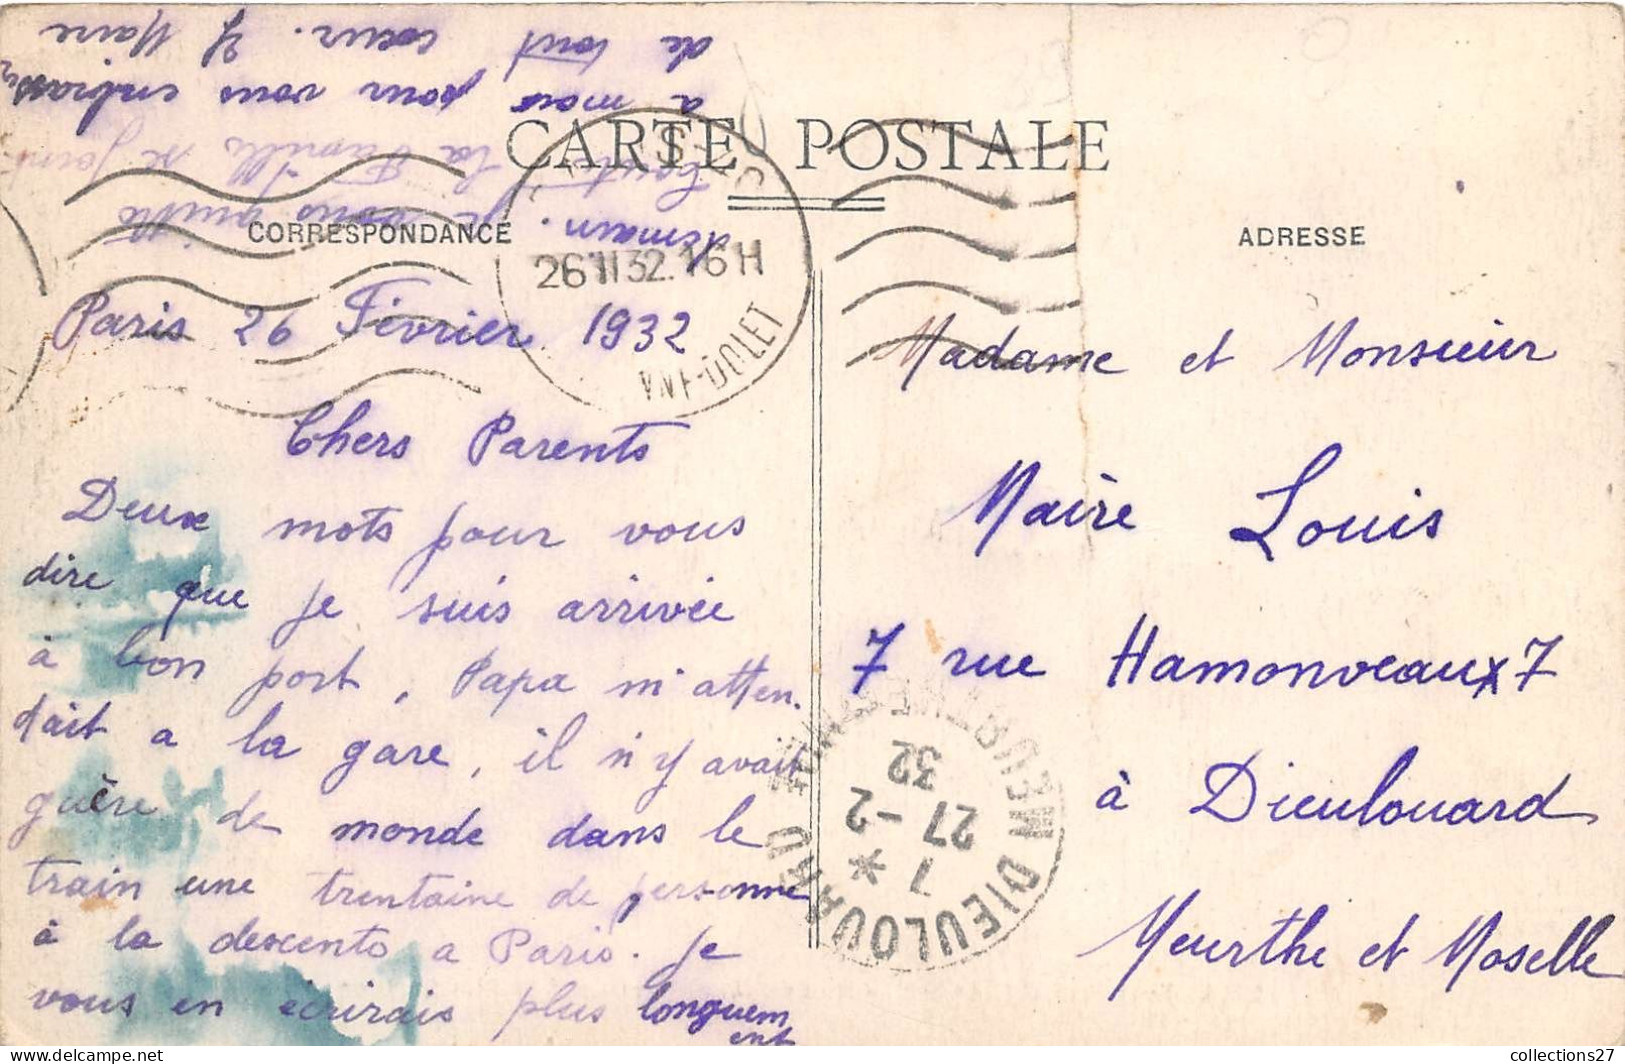 CARTE POSTALE
CORRESPONDANCE
ADRESSE
26 II 32. 16 H
Paris 26 Février 1932
Chers Parents
Deux mots pour vous
dire que je suis arrivée
à bon port, Papa m'atten.
dait a la gare, il n'y avait
guère de monde dans le
train une trentaine de personne
à la descente a Paris. Je
vous en écrirais plus longuem
ent
demain. Je vous quitte
toute la famille se joint
a moi pour vous embrasser
de tout coeur. Y Maire
Madame et Monsieur
Maire Louis
7 rue Hamonveaux 7
à Dieulouard
Meurthe et Moselle
DIEULOUARD
MEURTHE ET MOSELLE
7 *
27 - 2
32
collections27